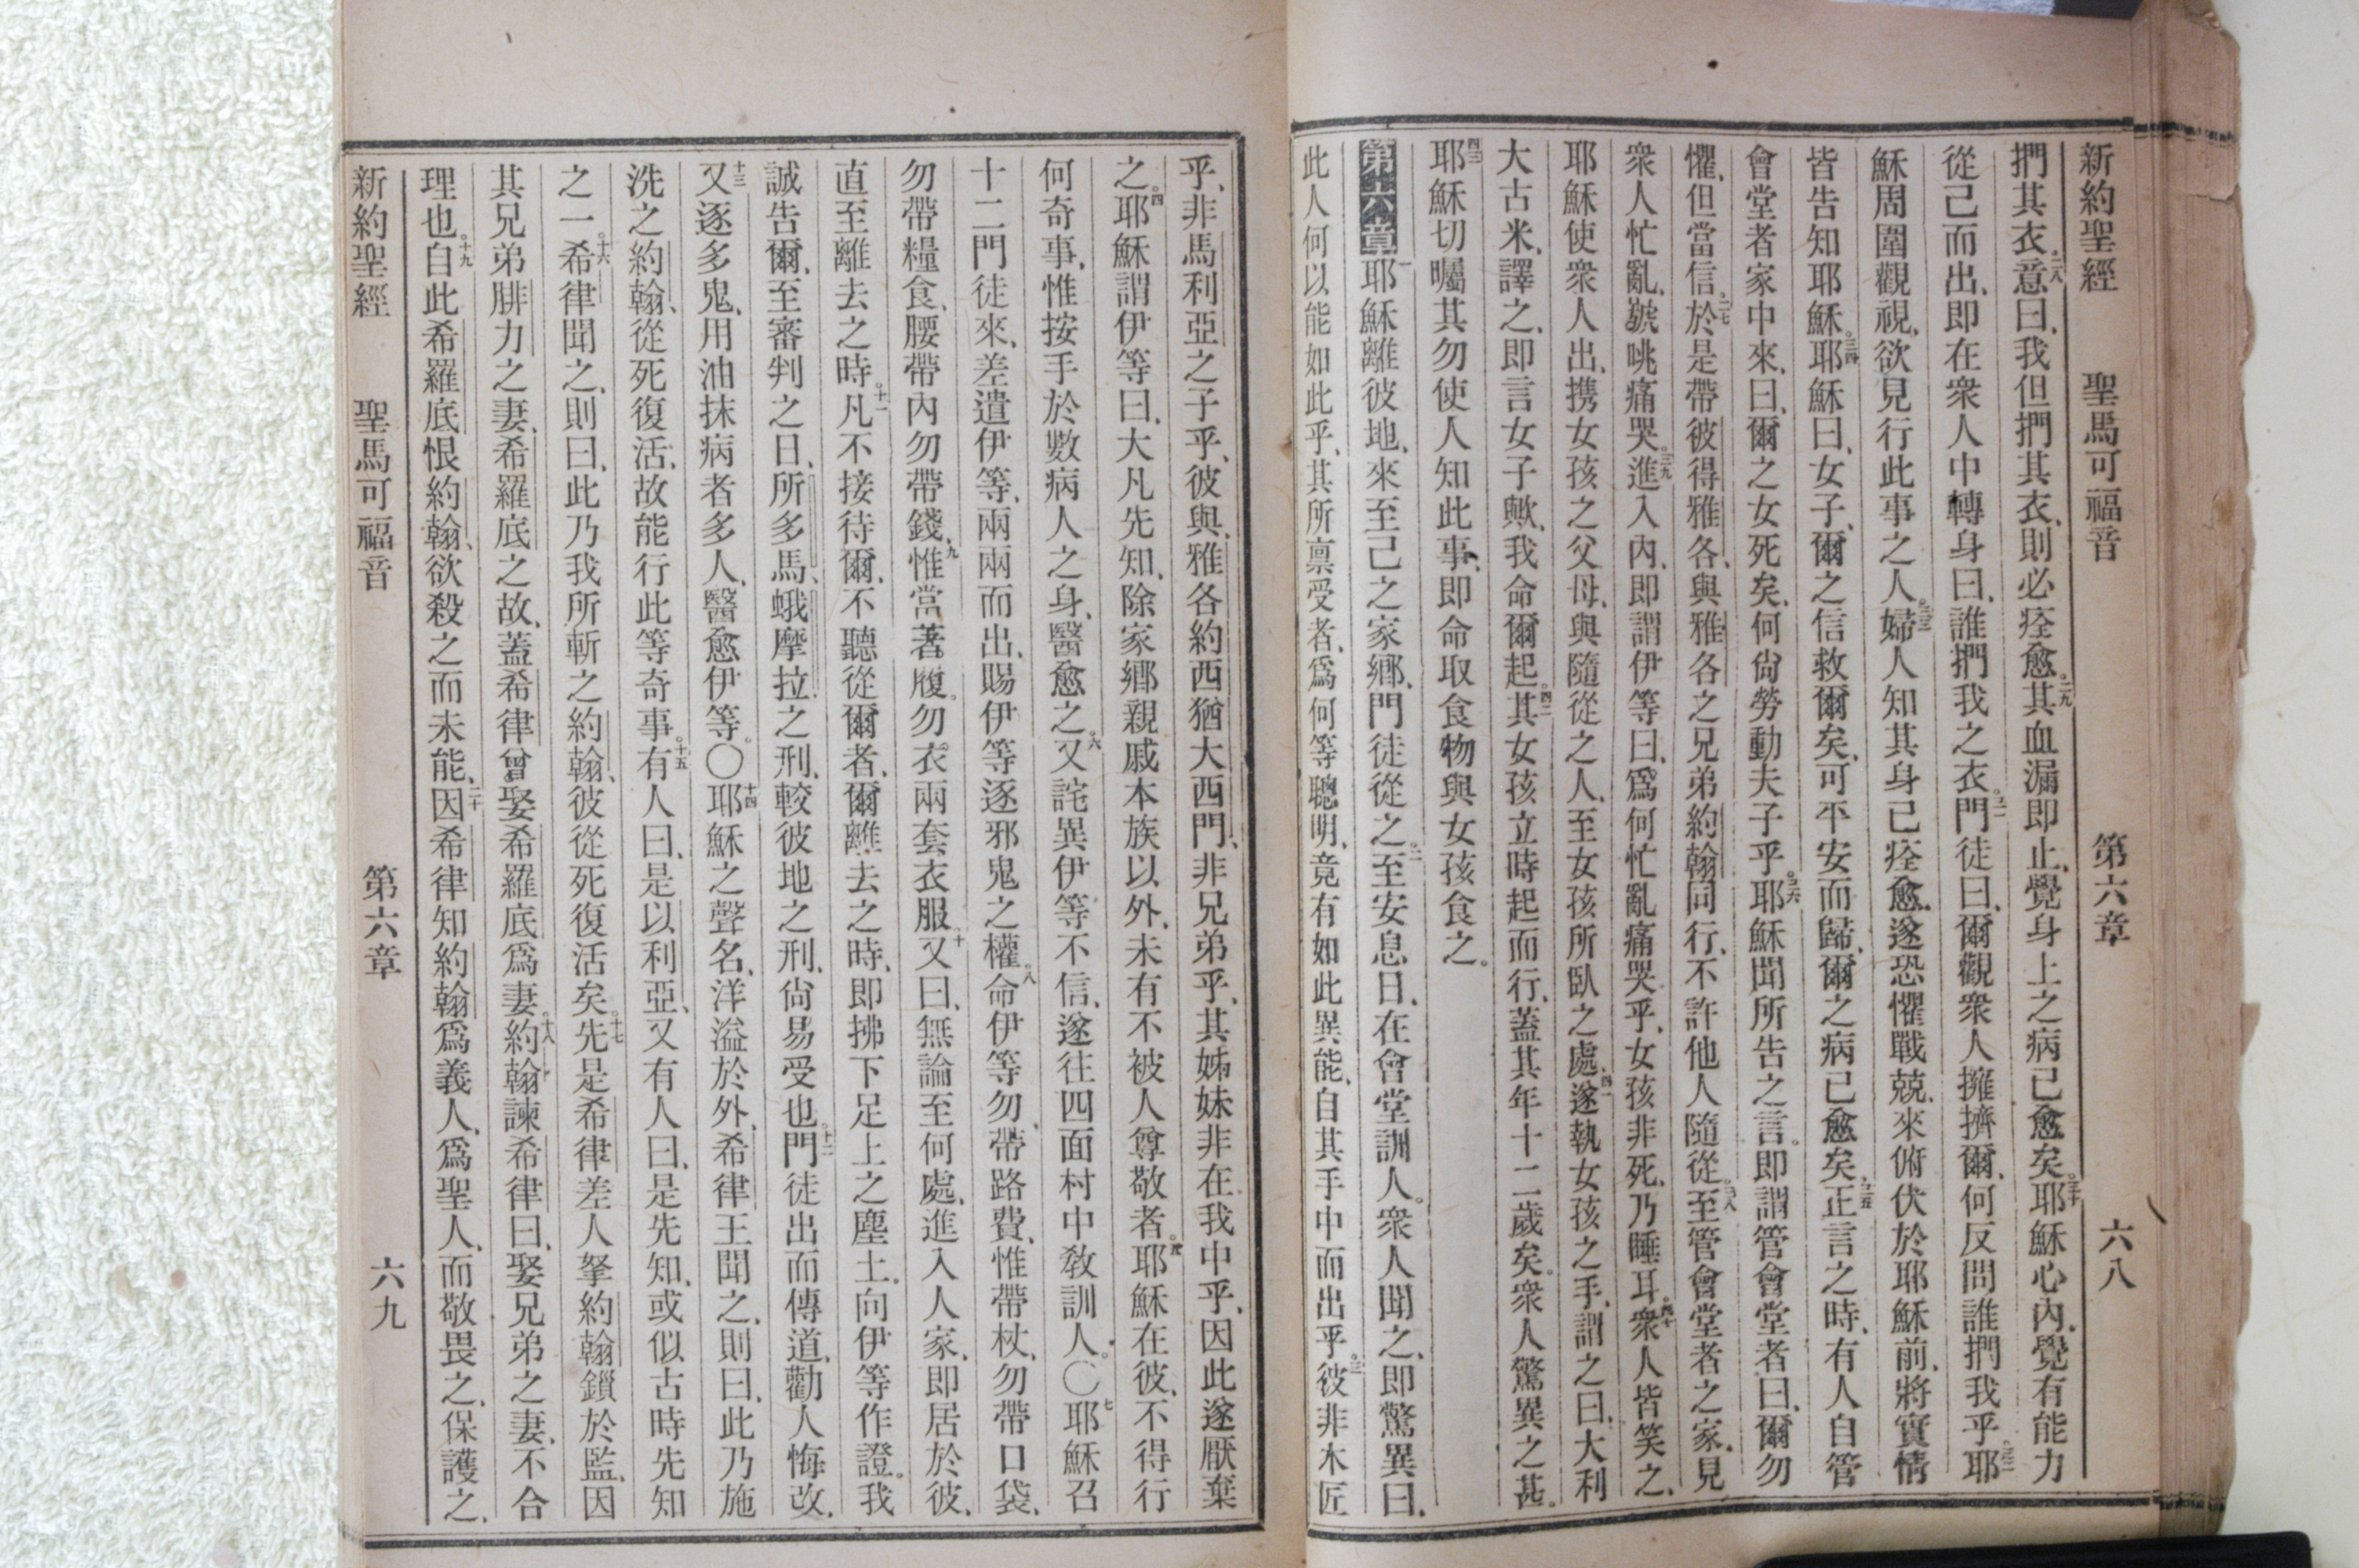 新約聖經 聖馬可福音 第六章 六八
捫其衣、二八意曰、我但捫其衣、則必痊愈。二九其血漏即止、覺身上之病已愈矣。三十耶穌心內、覺有能力
從己而出、即在衆人中轉身曰、誰捫我之衣。三一門徒曰、爾觀衆人擁擠爾、何反問誰捫我乎。三二耶
穌周圍觀視、欲見行此事之人。三三婦人知其身已痊愈、遂恐懼戰兢、來俯伏於耶穌前、將實情
皆告知耶穌。三四耶穌曰、女子、爾之信救爾矣、可平安而歸、爾之病已愈矣。三五正言之時、有人自管
會堂者家中來、曰、爾之女死矣、何尙勞動夫子乎。三六耶穌聞所告之言。即謂管會堂者曰、爾勿
懼、但當信。三七於是帶彼得雅各、與雅各之兄弟約翰同行、不許他人隨從。三八至管會堂者之家、見
衆人忙亂、號咷痛哭。三九進入內、即謂伊等曰、爲何忙亂痛哭乎、女孩非死、乃睡耳。四十衆人皆笑之、
耶穌使衆人出、携女孩之父母、與隨從之人、至女孩所臥之處。四一遂執女孩之手、謂之曰、大利
大古米、譯之、即言女子歟、我命爾起。四二其女孩立時起而行、蓋其年十二歲矣。衆人驚異之甚。
四三耶穌切囑其勿使人知此事、即命取食物與女孩食之。
第六章 一耶穌離彼地、來至己之家鄉、門徒從之。二至安息日、在會堂訓人。衆人聞之、即驚異曰、
此人何以能如此乎、其所禀受者、爲何等聰明、竟有如此異能、自其手中而出乎。三彼非木匠
乎、非馬利亞之子乎、彼與、雅各約西猶大西門、非兄弟乎、其姊妹非在我中乎、因此遂厭棄
之。四耶穌謂伊等曰、大凡先知、除家鄉親戚本族以外、未有不被人尊敬者。五耶穌在彼、不得行
何奇事、惟按手於數病人之身、醫愈之。六又詫異伊等不信、遂往四面村中敎訓人。〇七耶穌召
十二門徒來、差遣伊等、兩兩而出、賜伊等逐邪鬼之權。八命伊等勿帶路費、惟帶杖、勿帶口袋、
勿帶糧食、腰帶內勿帶錢、九惟當著履。勿衣兩套衣服。十又曰、無論至何處、進入人家、即居於彼、
直至離去之時。十一凡不接待爾、不聽從爾者、爾離去之時、即拂下足上之塵土。向伊等作證。我
誠告爾、至審判之日、所多馬、蛾摩拉之刑、較彼地之刑、尙易受也。十二門徒出而傳道、勸人悔改、
十三又逐多鬼、用油抹病者多人、醫愈伊等。〇十四耶穌之聲名、洋溢於外、希律王聞之、則曰、此乃施
洗之約翰、從死復活、故能行此等奇事。十五有人曰、是以利亞、又有人曰、是先知、或似古時先知
之一。十六希律聞之、則曰、此乃我所斬之約翰、彼從死復活矣。十七先是希律差人拏約翰鎖於監、因
其兄弟腓力之妻、希羅底之故、蓋希律曾娶希羅底爲妻。十八約翰諫希律曰、娶兄弟之妻、不合
理也。十九自此希羅底恨約翰、欲殺之而未能、二十因希律知約翰爲義人、爲聖人、而敬畏之、保護之、
新約聖經 聖馬可福音 第六章 六九